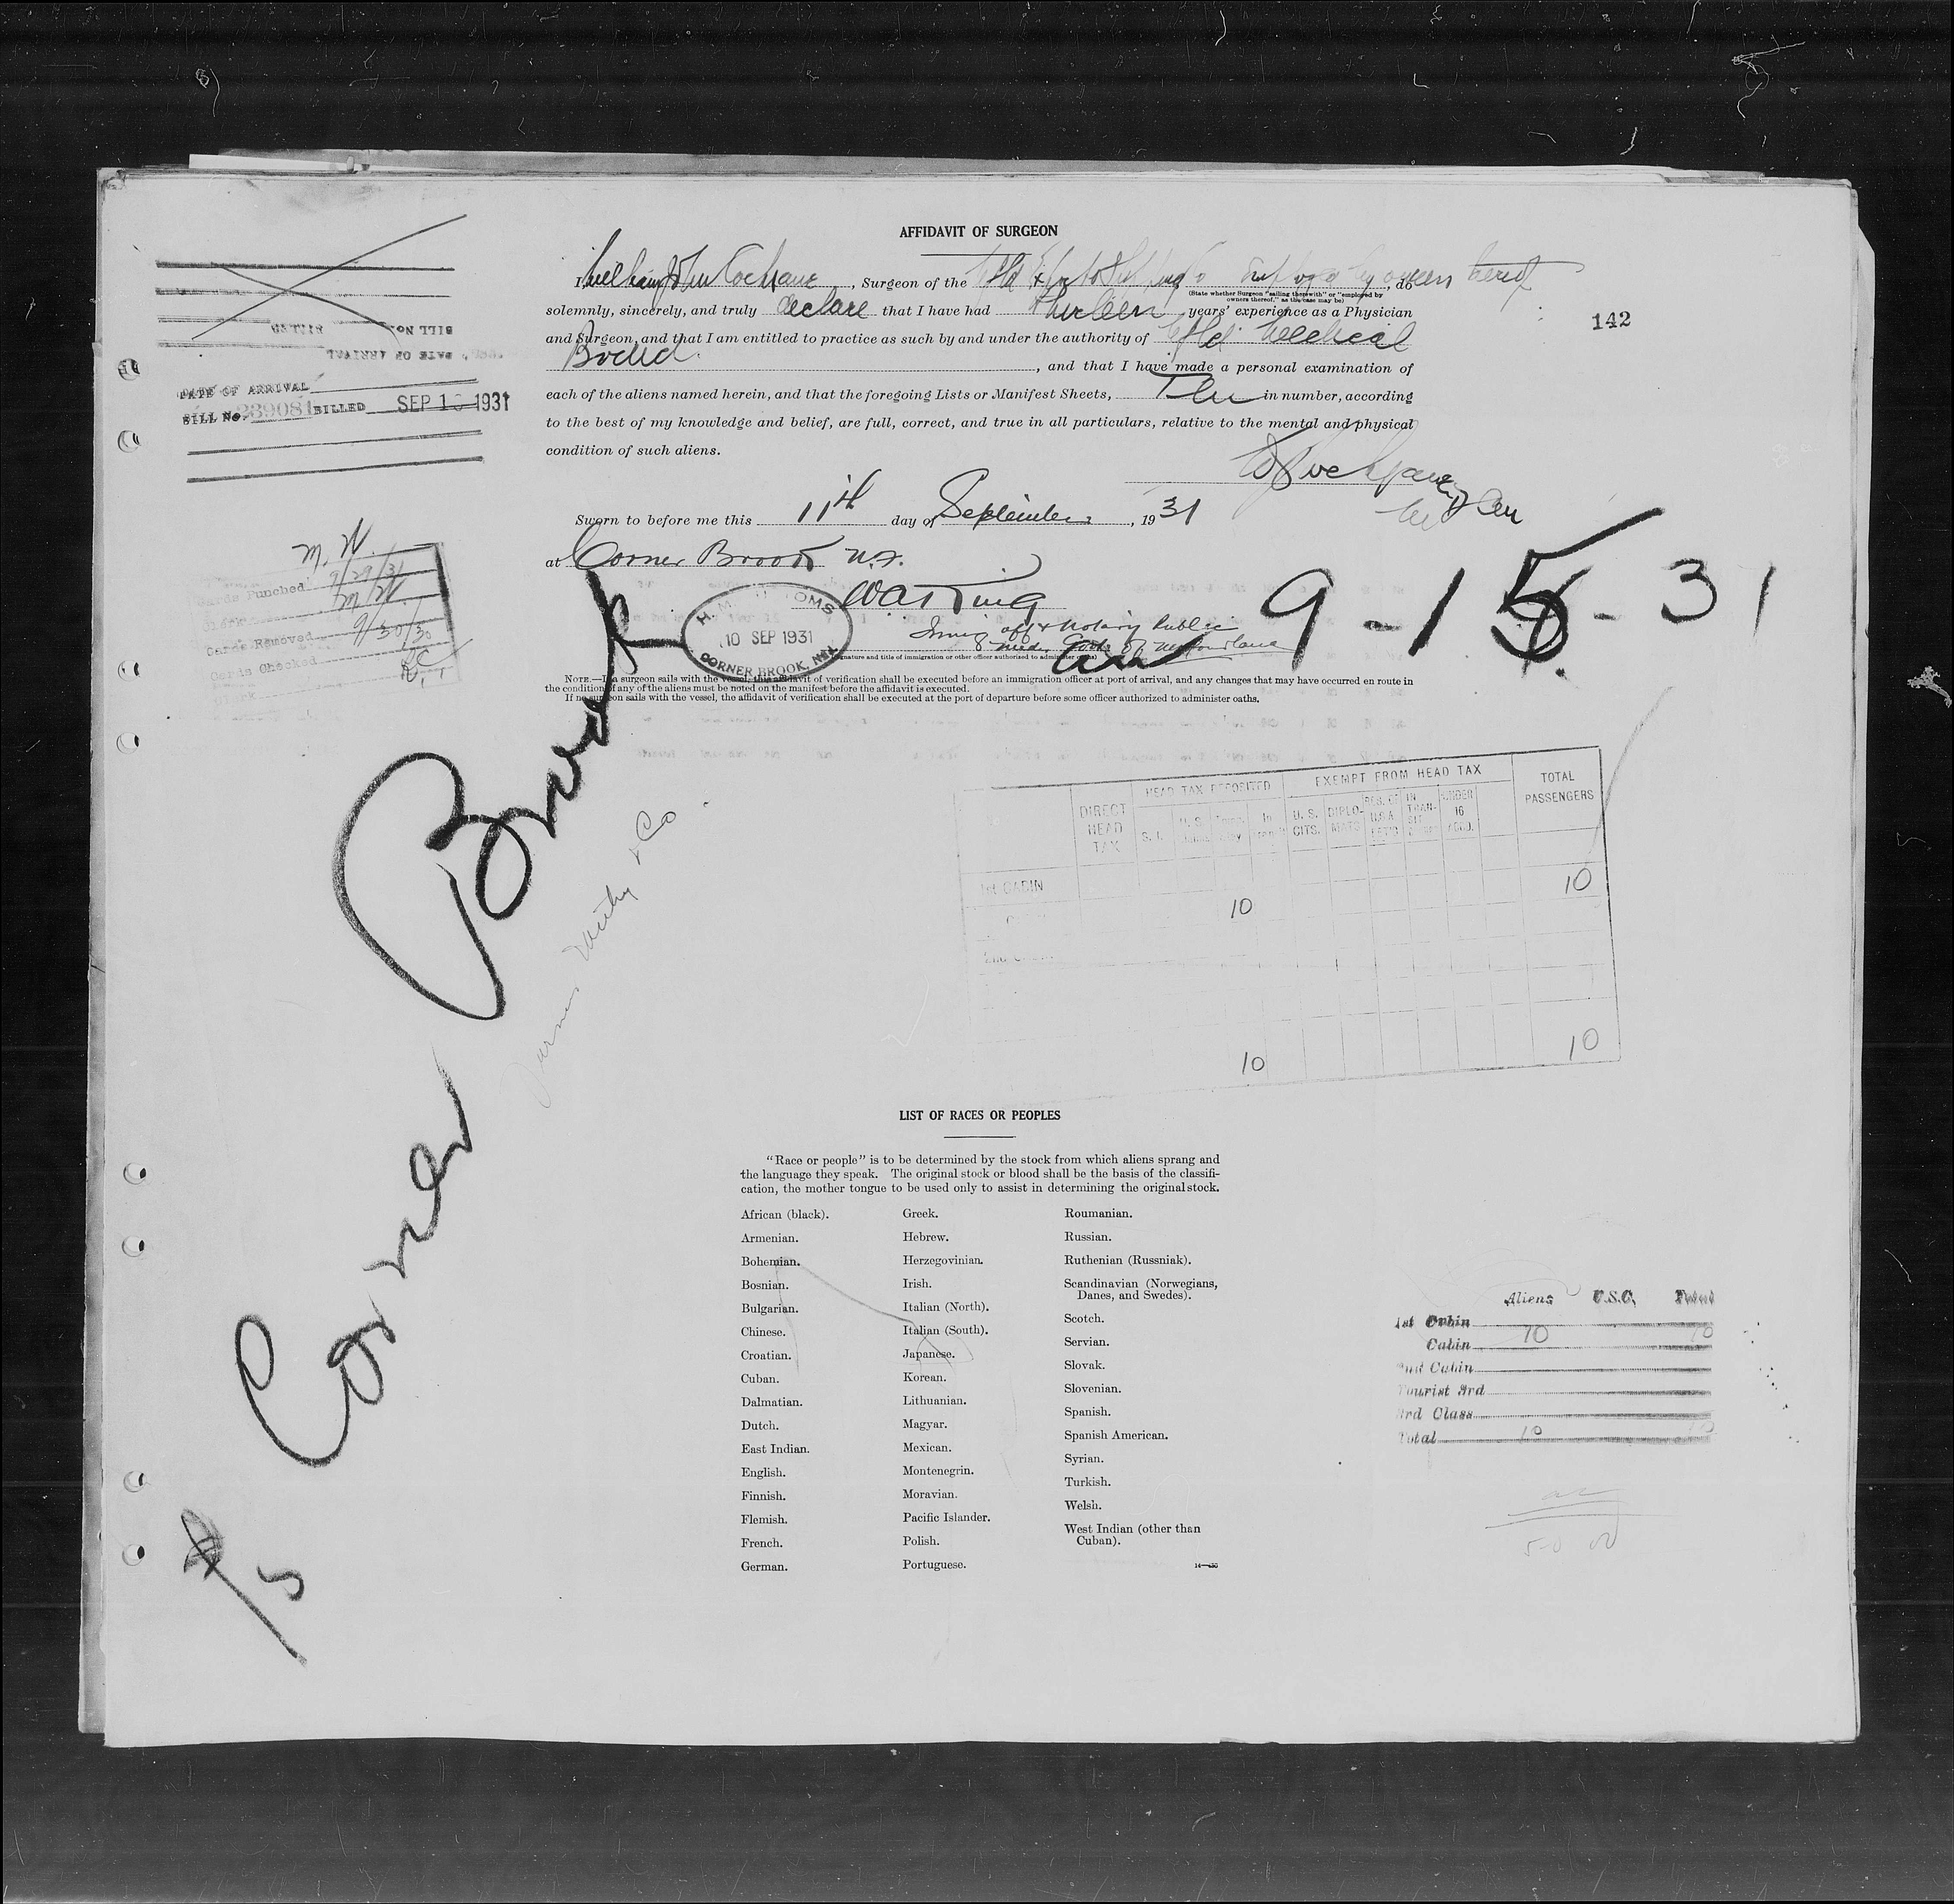 AFFIDAVIT OF SURGEON
I, William John Cochrane, Surgeon of the Nfld Export & Shipping Co, do
(State whether Surgeon "sailing therewith" or "employed by owners thereof," as the case may be)
solemnly, sincerely, and truly declare that I have had thirteen years' experience as a Physician
and Surgeon, and that I am entitled to practice as such by and under the authority of Nfld. Medical
Board., and that I have made a personal examination of
each of the aliens named herein, and that the foregoing Lists or Manifest Sheets, in number, according
to the best of my knowledge and belief, are full, correct, and true in all particulars, relative to the mental and physical
condition of such aliens.
142
DATE OF ARRIVAL
BILL No. 239081 BILLED SEP 1 1931
Sworn to before me this 11th day of September, 1931
at Corner Brook N.F.
Immig off & Notary Public
(Signature and title of immigration or other officer authorised to administer oaths)
10 SEP 1931
CORNER BROOK, Nfld.
9-15-31
M.W.
Cards Punched 9/29/31
Clerk M.W.
Cards Removed 9/30/30
Cards Checked
Clerk
NOTE.—If a surgeon sails with the vessel, this affidavit of verification shall be executed before an immigration officer at port of arrival, and any changes that may have occurred en route in
the condition of any of the aliens must be noted on the manifest before the affidavit is executed.
If no surgeon sails with the vessel, the affidavit of verification shall be executed at the port of departure before some officer authorized to administer oaths.
S/S Corner Brook
& Co.
HEAD TAX DEPOSITED EXEMPT FROM HEAD TAX TOTAL PASSENGERS
DIRECT HEAD TAX S. I. U. S. In U. S. CITS. DIPLO- MATS IN TRAN- SIT UNDER 16 ACND.
1st CABIN 10
10
2nd
10 10
LIST OF RACES OR PEOPLES
"Race or people" is to be determined by the stock from which aliens sprang and
the language they speak. The original stock or blood shall be the basis of the classifi-
cation, the mother tongue to be used only to assist in determining the original stock.
African (black).
Armenian.
Bohemian.
Bosnian.
Bulgarian.
Chinese.
Croatian.
Cuban.
Dalmatian.
Dutch.
East Indian.
English.
Finnish.
Flemish.
French.
German.
Greek.
Hebrew.
Herzegovinian.
Irish.
Italian (North).
Italian (South).
Japanese.
Korean.
Lithuanian.
Magyar.
Mexican.
Montenegrin.
Moravian.
Pacific Islander.
Polish.
Portuguese.
Roumanian.
Russian.
Ruthenian (Russniak).
Scandinavian (Norwegians,
Danes, and Swedes).
Scotch.
Servian.
Slovak.
Slovenian.
Spanish.
Spanish American.
Syrian.
Turkish.
Welsh.
West Indian (other than
Cuban).
Aliens U.S.C. Total
1st Cabin
Cabin 10 10
2nd Cabin
Tourist 3rd
3rd Class
Total 10 10
50 00